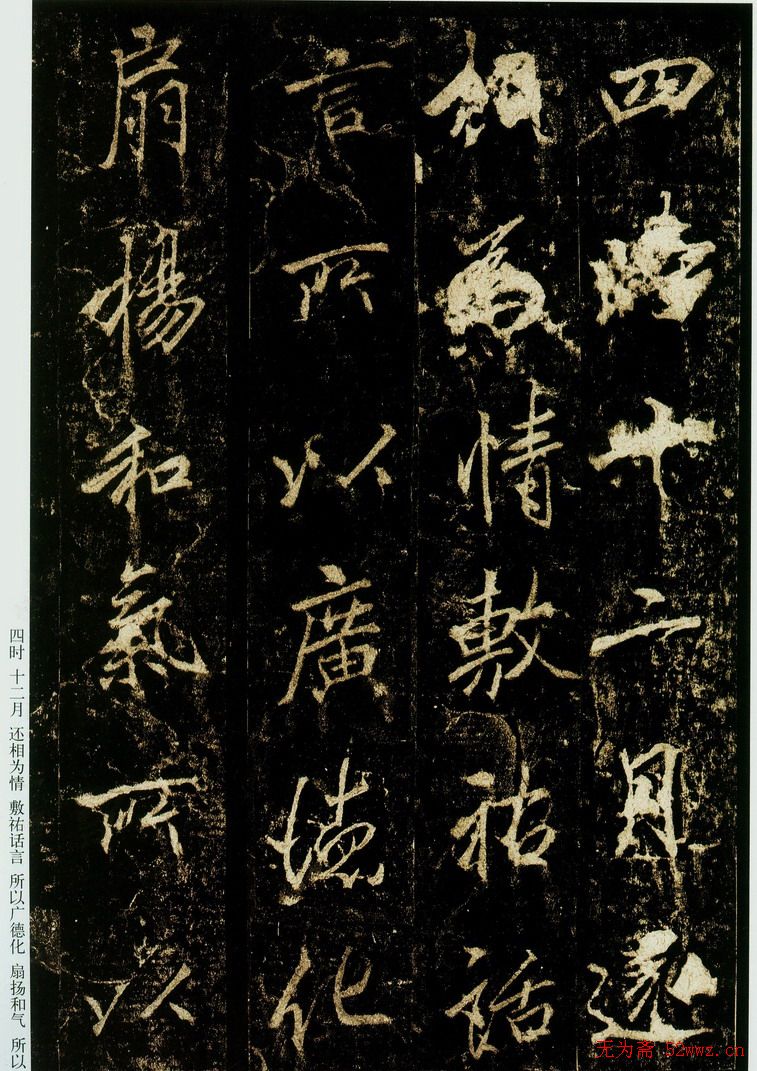 四時十二月還
相為情敷祐話
言所以廣德化
扇揚和氣所以
四时 十二月 还相为情 敷祐话言 所以广德化 扇扬和气 所以
无为斋.52wwz.cn